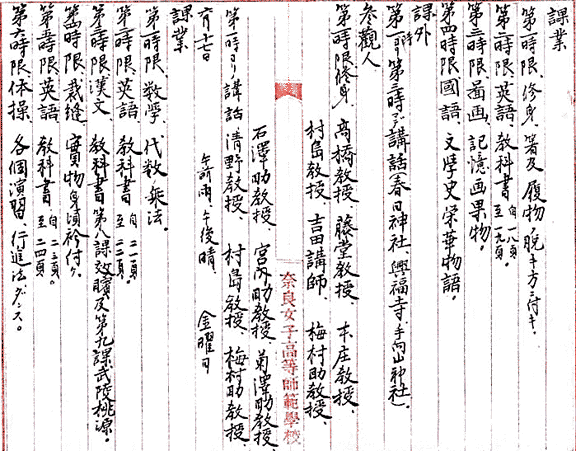 課業
第一時限、修身、箸及履物ノ脱キ方ニ付キ。
第二時限、英語、教科書自一八頁至一九頁。
第三時限、畜画、記憶画果物。
第四時限國語、文学史栄華物語。
課外
第一時ヨリ第二時マデ講話春日神社、興福寺、手向山神社。
参觀人
第一時限修身、高橋教授、藤堂教授、本庄教授、
村島教授、吉田講師、梅村助教授、
奈良女子高等師範學校
石澤助教授 宮内助教授、菊澤助教授、
第一時ヨリ講話清野教授、村島教授、梅村助教授、
六月十七日 午前雨、午後晴、 金曜日
課業
第一時限、数学、代数乗法。
第二時限、英語、教科書自二一頁至二二頁。
第三時限漢文 教科書第八課效顰及第九課武陵桃源。
第四時限、裁縫、實物身頃衿付ケ。
第五時限英語、教科書自二三頁至二四頁。
第六時限体操、各個演習、行進法ダンス。